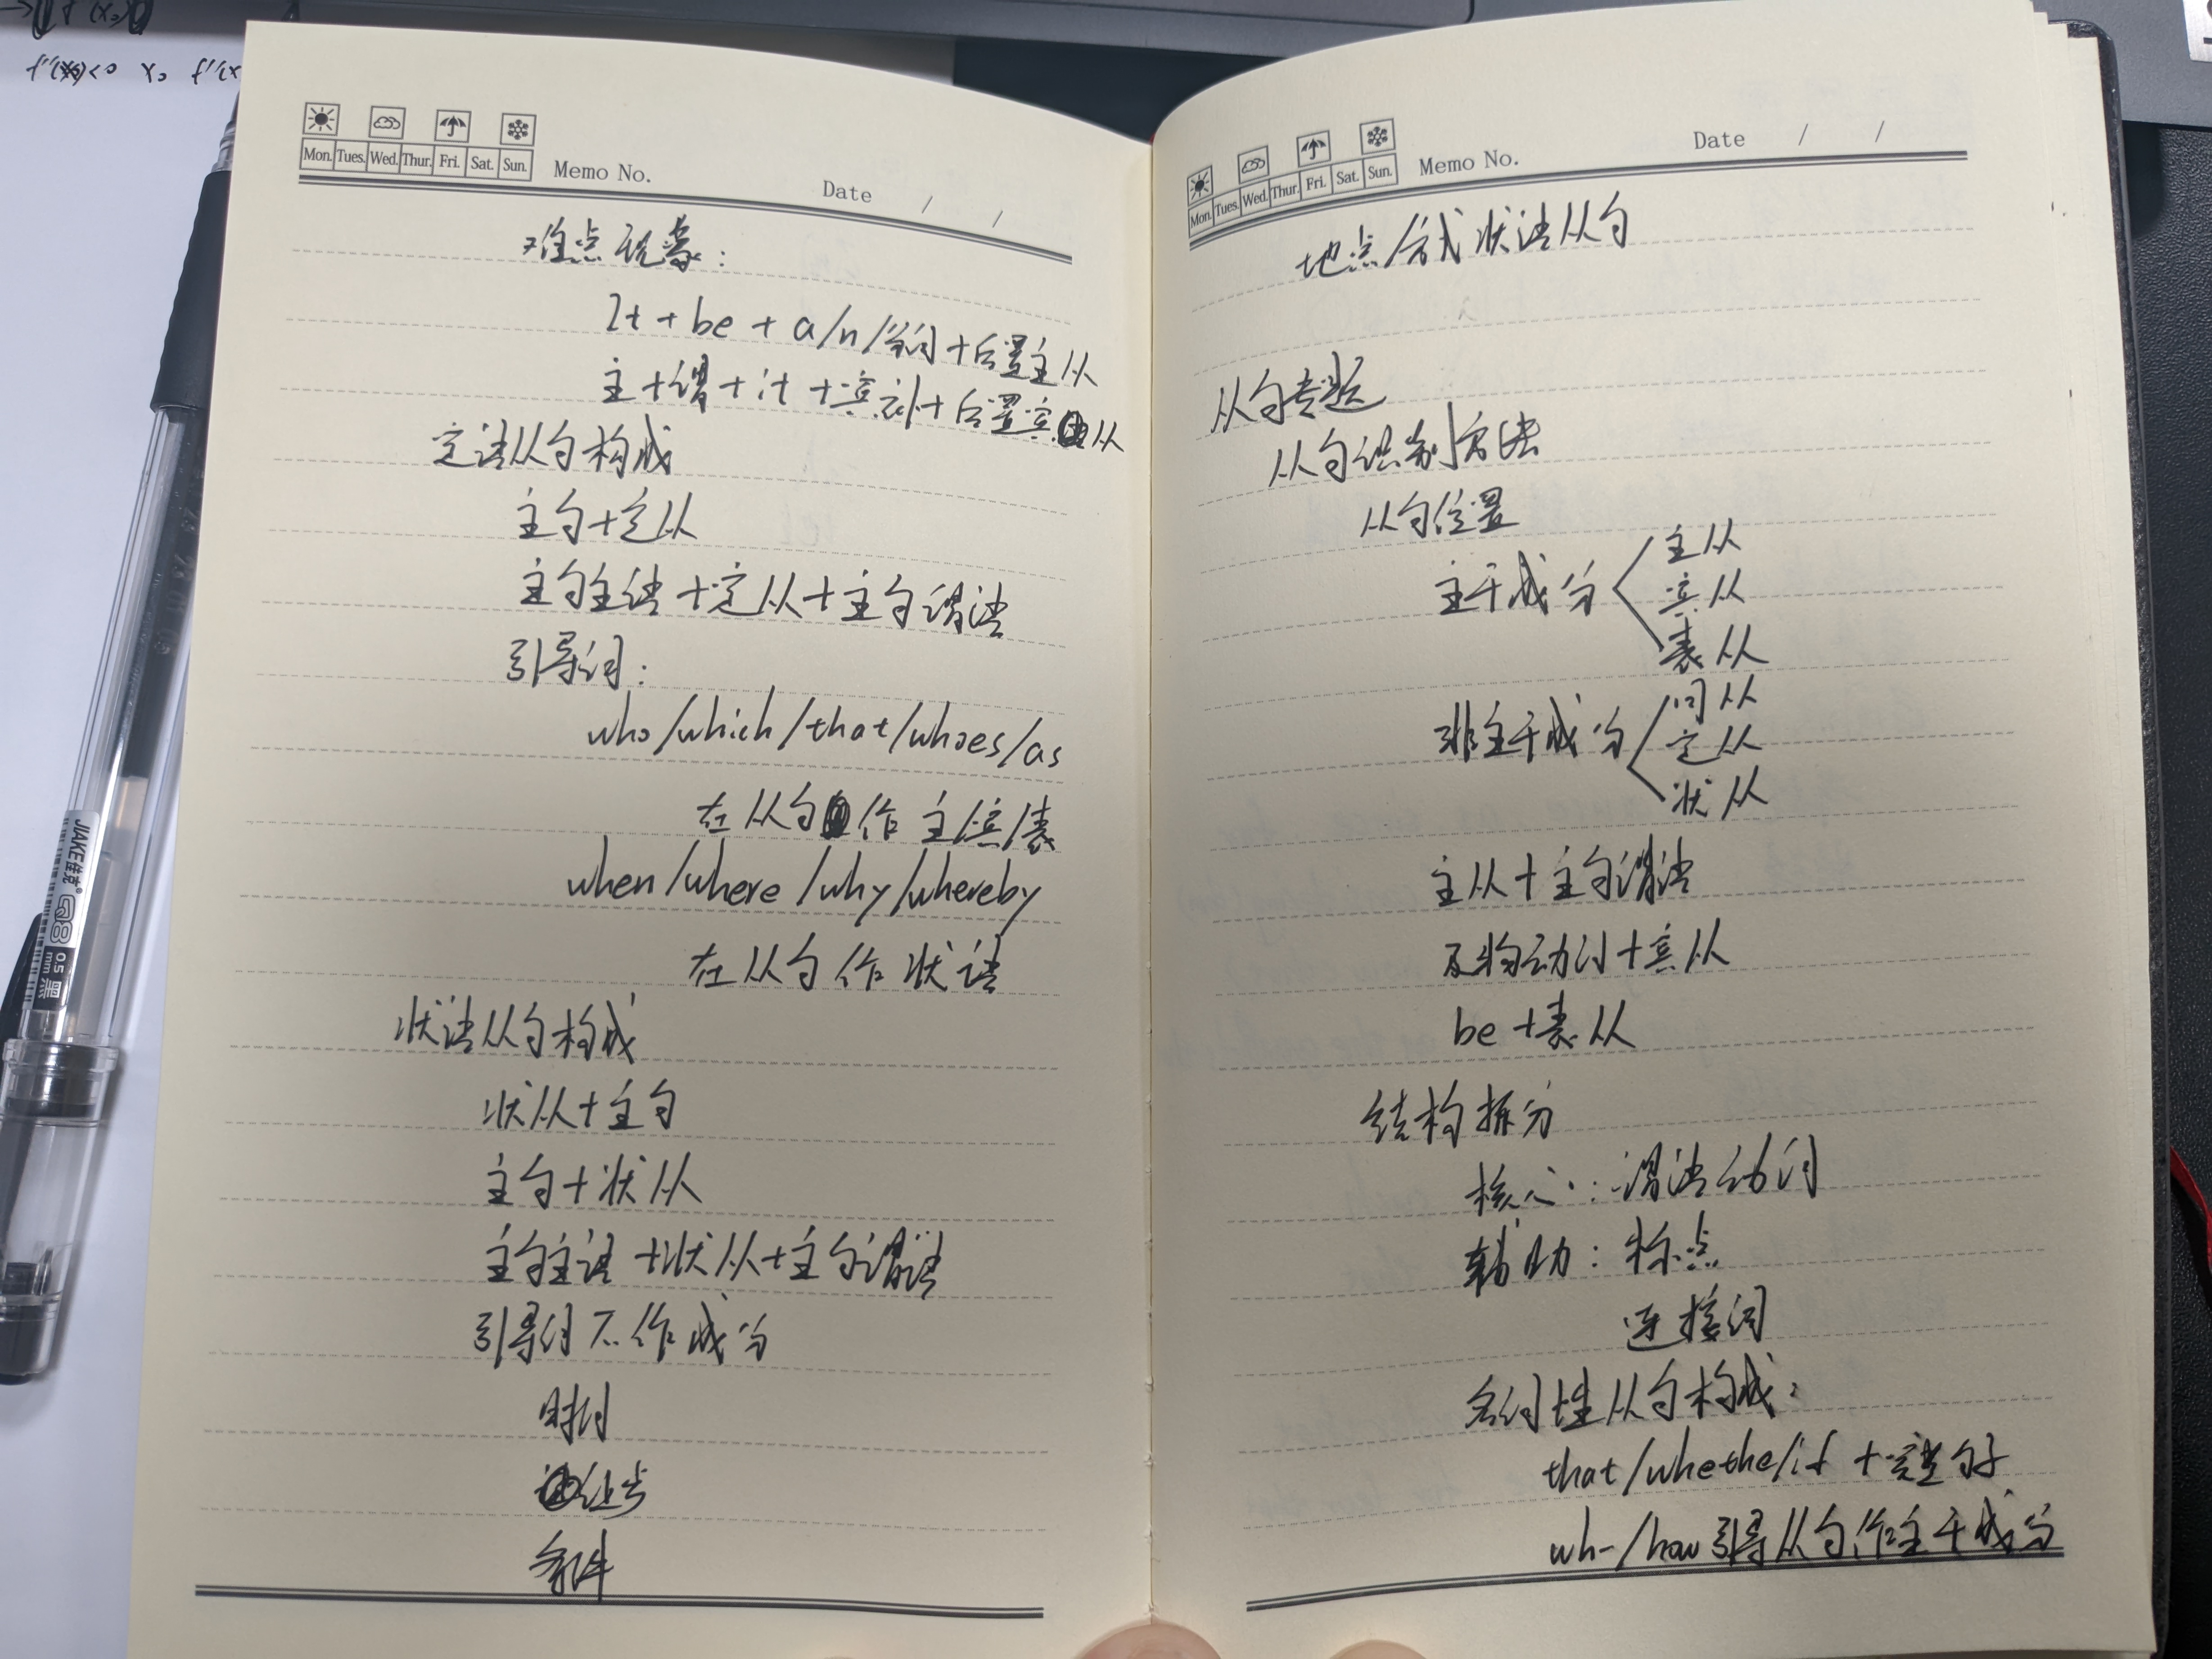 f''(x)<0 x₀ f''(x
Mon. Tues. Wed. Thur. Fri. Sat. Sun. Memo No. Date / /
难点现象:
It + be + a/n/单词+后置主从
主+谓+it+宾补+后置宾从
定语从句构成
主句+定从
主句主语+定从+主句谓语
引导词:
who/which/that/whoes/as
在从句作主/宾/表
when/where/why/whereby
在从句作状语
状语从句构成
状从+主句
主句+状从
主句主语+状从+主句谓语
引导词不作成分
时间
让步
条件
JIAKE佳克® Q8 0.5mm 黑
Mon. Tues. Wed. Thur. Fri. Sat. Sun. Memo No. Date / /
地点/方式状语从句
从句专题
从句识别方法
从句位置
主干成分 主从
宾从
表从
非主干成分 同从
定从
状从
主从+主句谓语
及物动词+宾从
be+表从
结构拆分
核心:谓语动词
辅助:标点
连接词
名词性从句构成:
that/whethe/if+完整句子
wh-/how引导从句作主干成分